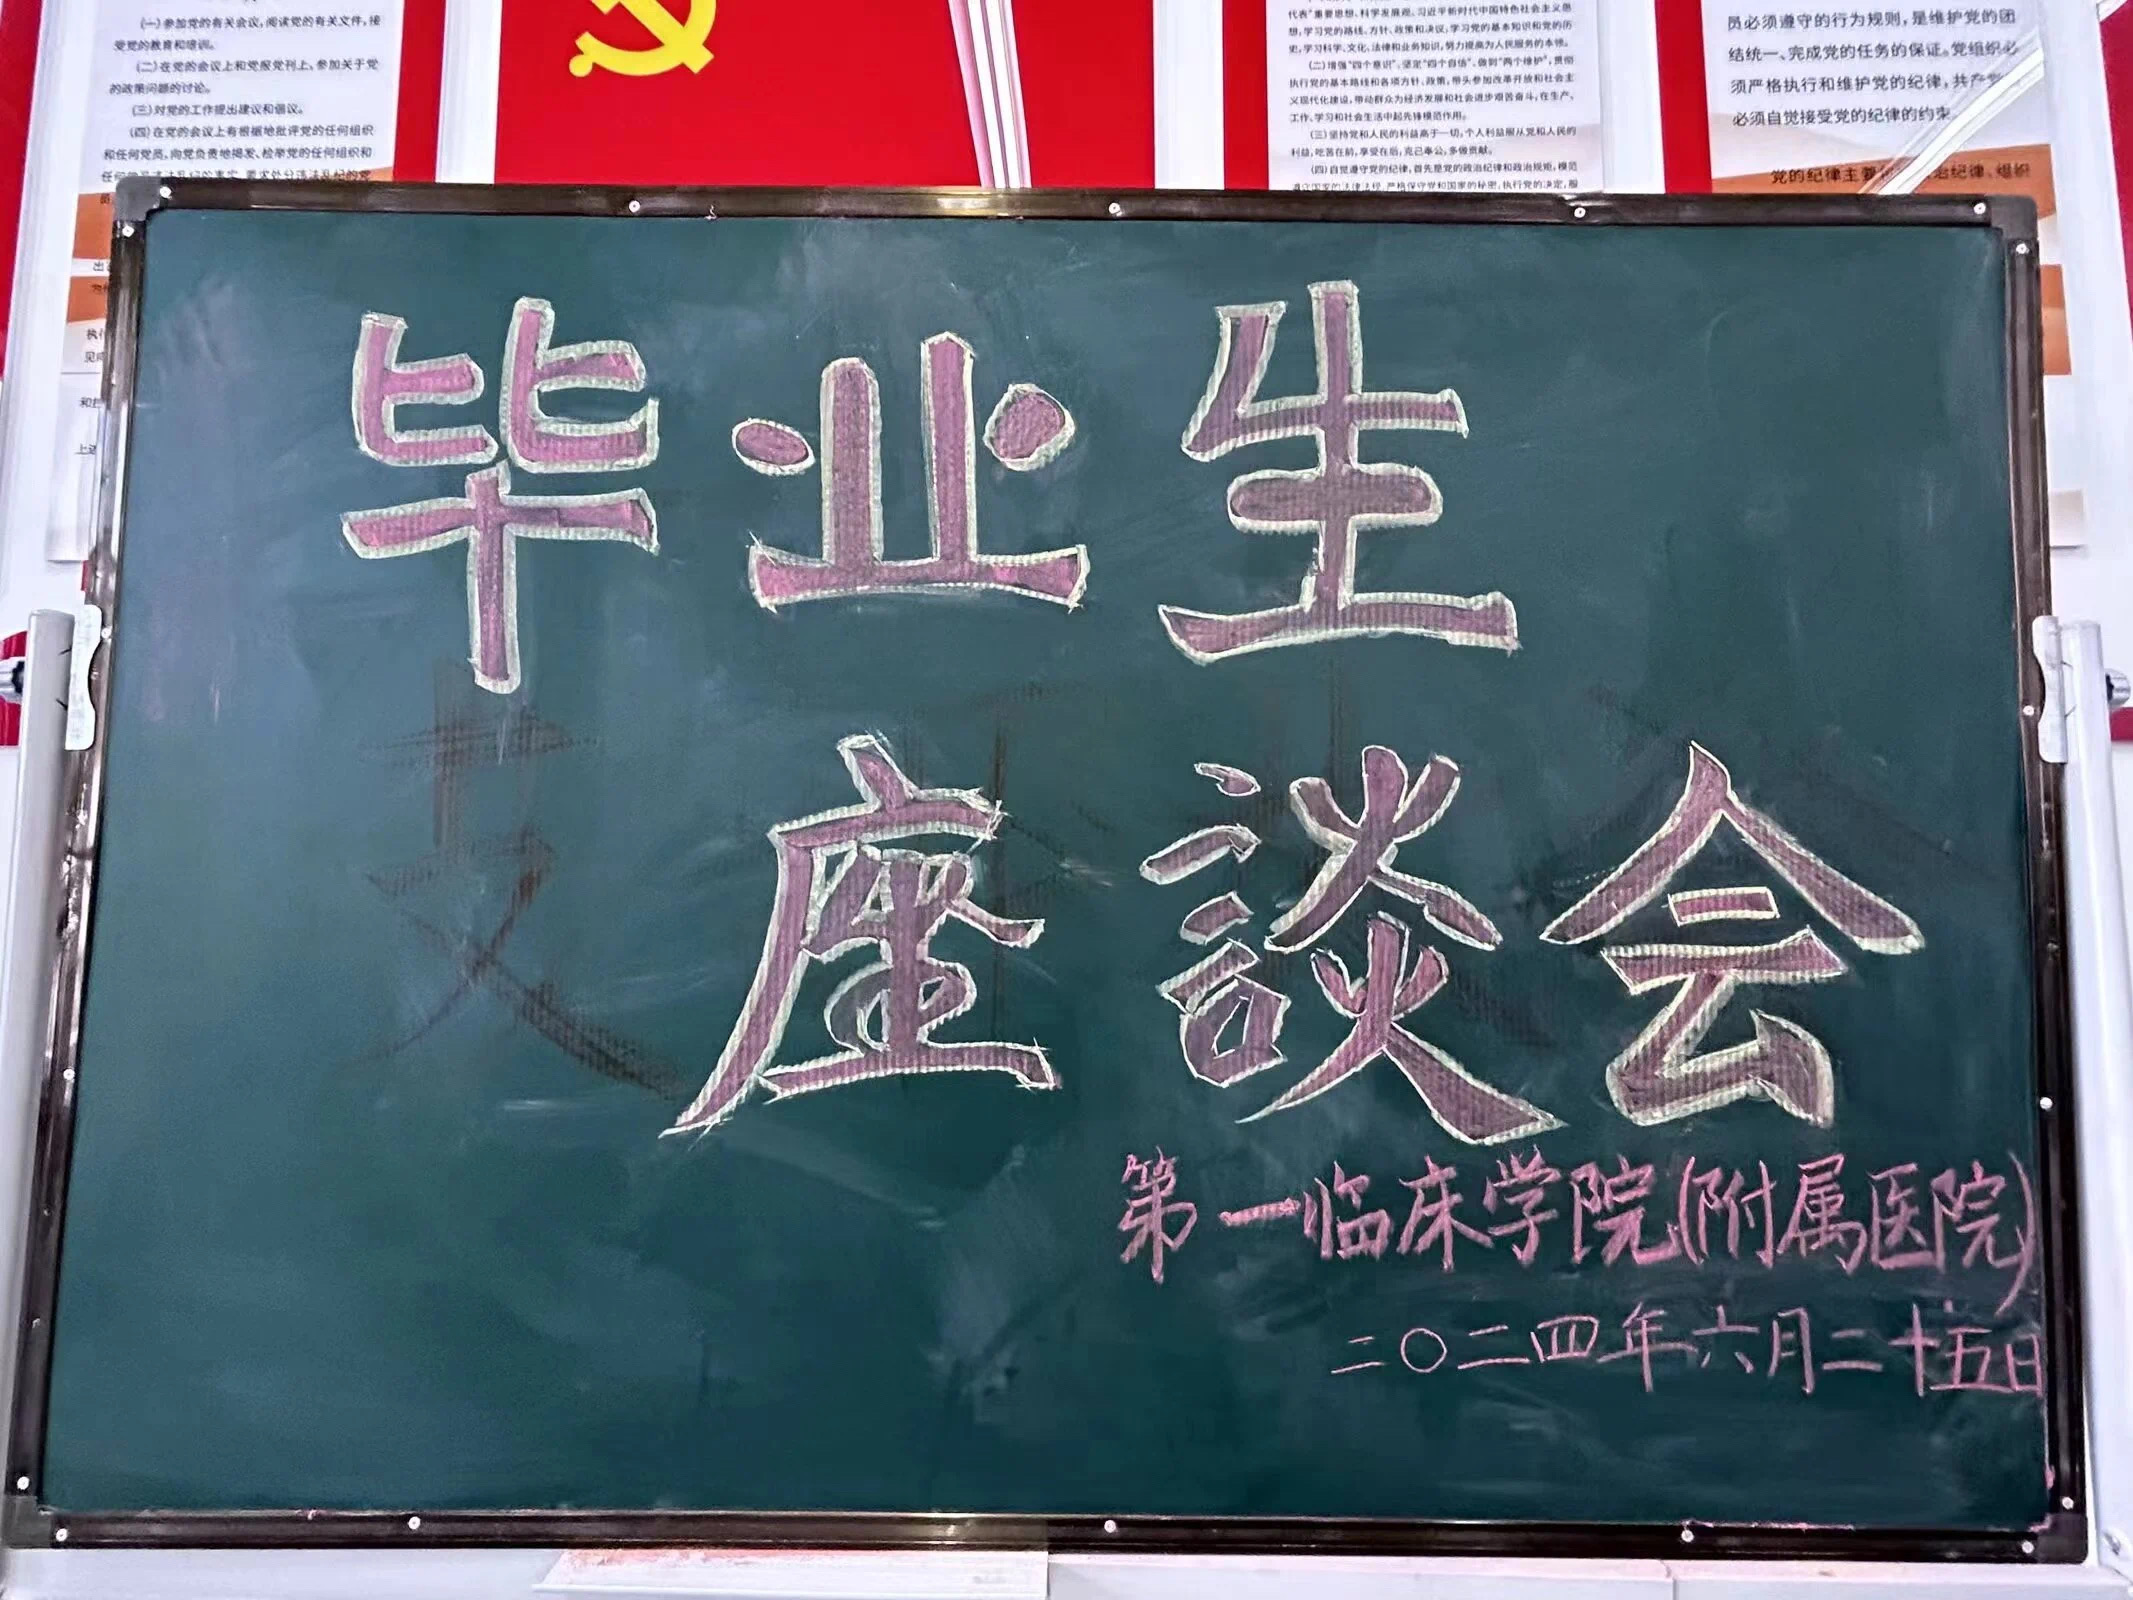 (一)参加党的有关会议,阅读党的有关文件,接
受党的教育和培训。
(二)在党的会议上和党报党刊上,参加关于党
的政策问题的讨论。
(三)对党的工作提出建议和倡议。
(四)在党的会议上有根据地批评党的任何组织
和任何党员,向党负责地揭发、检举党的任何组织和
代表”重要思想、科学发展观、习近平新时代中国特色社会主义思
想,学习党的路线、方针、政策和决议,学习党的基本知识和党的历
史,学习科学、文化、法律和业务知识,努力提高为人民服务的本领。
(二)增强“四个意识”、坚定“四个自信”、做到“两个维护”,贯彻
执行党的基本路线和各项方针、政策,带头参加改革开放和社会主
义现代化建设,带动群众为经济发展和社会进步艰苦奋斗,在生产、
工作、学习和社会生活中起先锋模范作用。
(三)坚持党和人民的利益高于一切,个人利益服从党和人民的
利益,吃苦在前,享受在后,克己奉公,多做贡献。
(四)自觉遵守党的纪律,首先是党的政治纪律和政治规矩,模范
员必须遵守的行为规则,是维护党的团
结统一、完成党的任务的保证。党组织必
须严格执行和维护党的纪律,共产
必须自觉接受党的纪律的约束。
党的纪律主要 治纪律、组织
毕业生
座談会
第一临床学院(附属医院)
二〇二四年六月二十五日